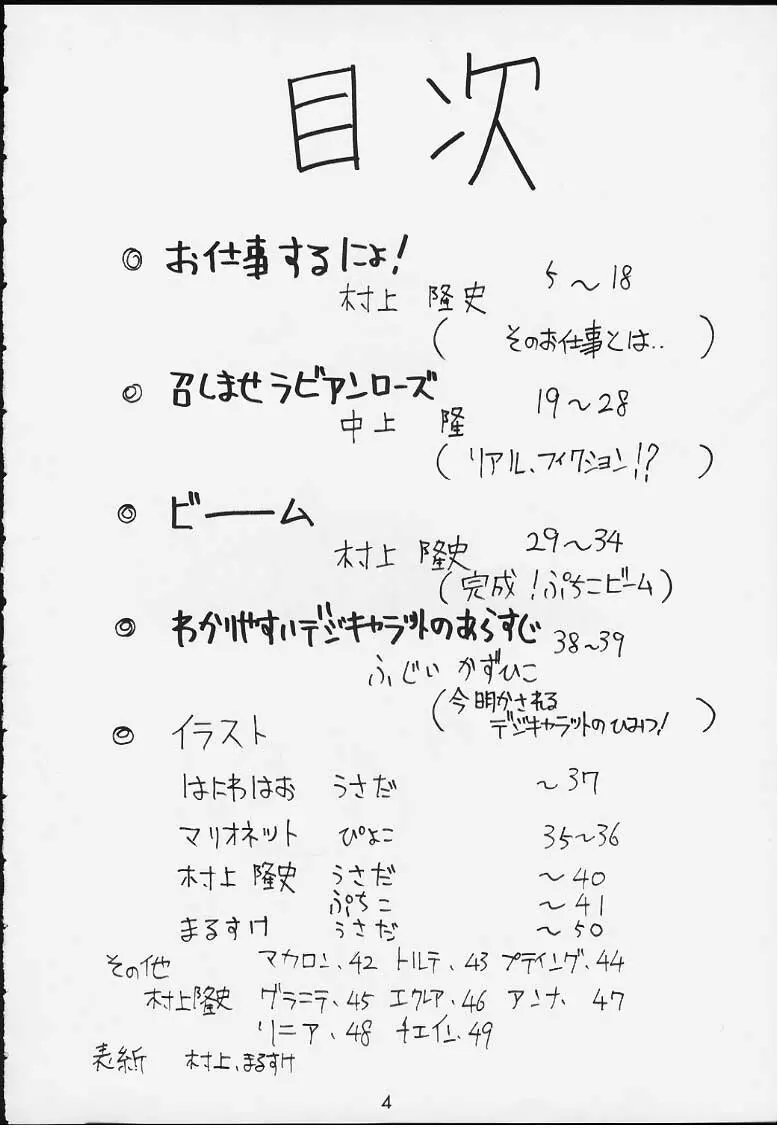 目次
◎ お仕事するにょ！
村上 隆史 5〜18
（そのお仕事とは‥）
◎ 召しませラビアンローズ
中上 隆 19〜28
（リアル、フィクション!?）
◎ ビーーーム
村上 隆史 29〜34
（完成！ぷちこビーム）
◎ わかりやすいデジキャラットのあらすじ 38〜39
ふじい かずひこ
（今明かされる
デジキャラットのひみつ！）
◎ イラスト
はにわはお うさだ 〜37
マリオネット ぴよこ 35〜36
村上 隆史 うさだ 〜40
ぷちこ 〜41
まるすけ うさだ 〜50
その他 マカロン、42 トルテ、43 プティング、44
村上隆史 グラニテ、45 エクレア、46 アンナ、47
リニア、48 チェイン、49
表紙 村上、まるすけ
4